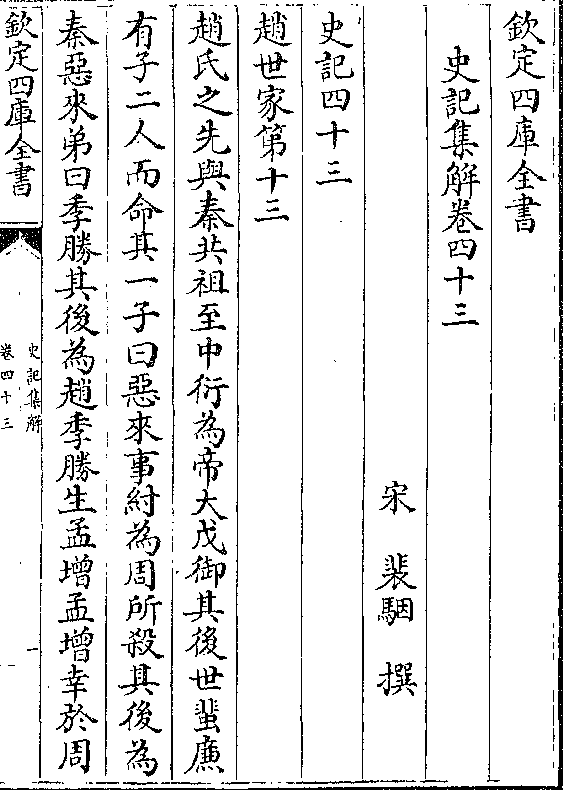 欽定四庫全書
史記集解卷四十三
宋　裴駰　撰
史記四十三
趙世家第十三
趙氏之先與秦共祖至中衍為帝大戊御其後世蜚廉
有子二人而命其一子曰惡來事紂為周所殺其後為
秦惡來弟曰季勝其後為趙季勝生孟增孟增幸於周
欽定四庫全書
史記集解
卷四十三
一